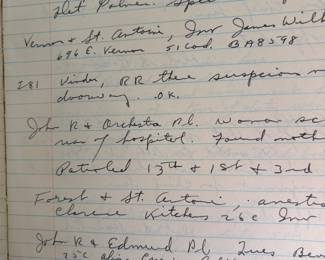 Det Palmer. Spec
Vernor & St. Antoine, Inv James Will
696 E. Vernor 51 Cad. BA8598
I 81 Vinder, RR three suspicion m
doorway. OK.
John R & Orchestra Pl. Woman sc
rear of hospital. Found noth
Patroled 13th & 1st & 3rd
Forest & St. Antoine, arrest
Clarence Kitches 26c Inv
John R & Edmund Pl Inves Bea